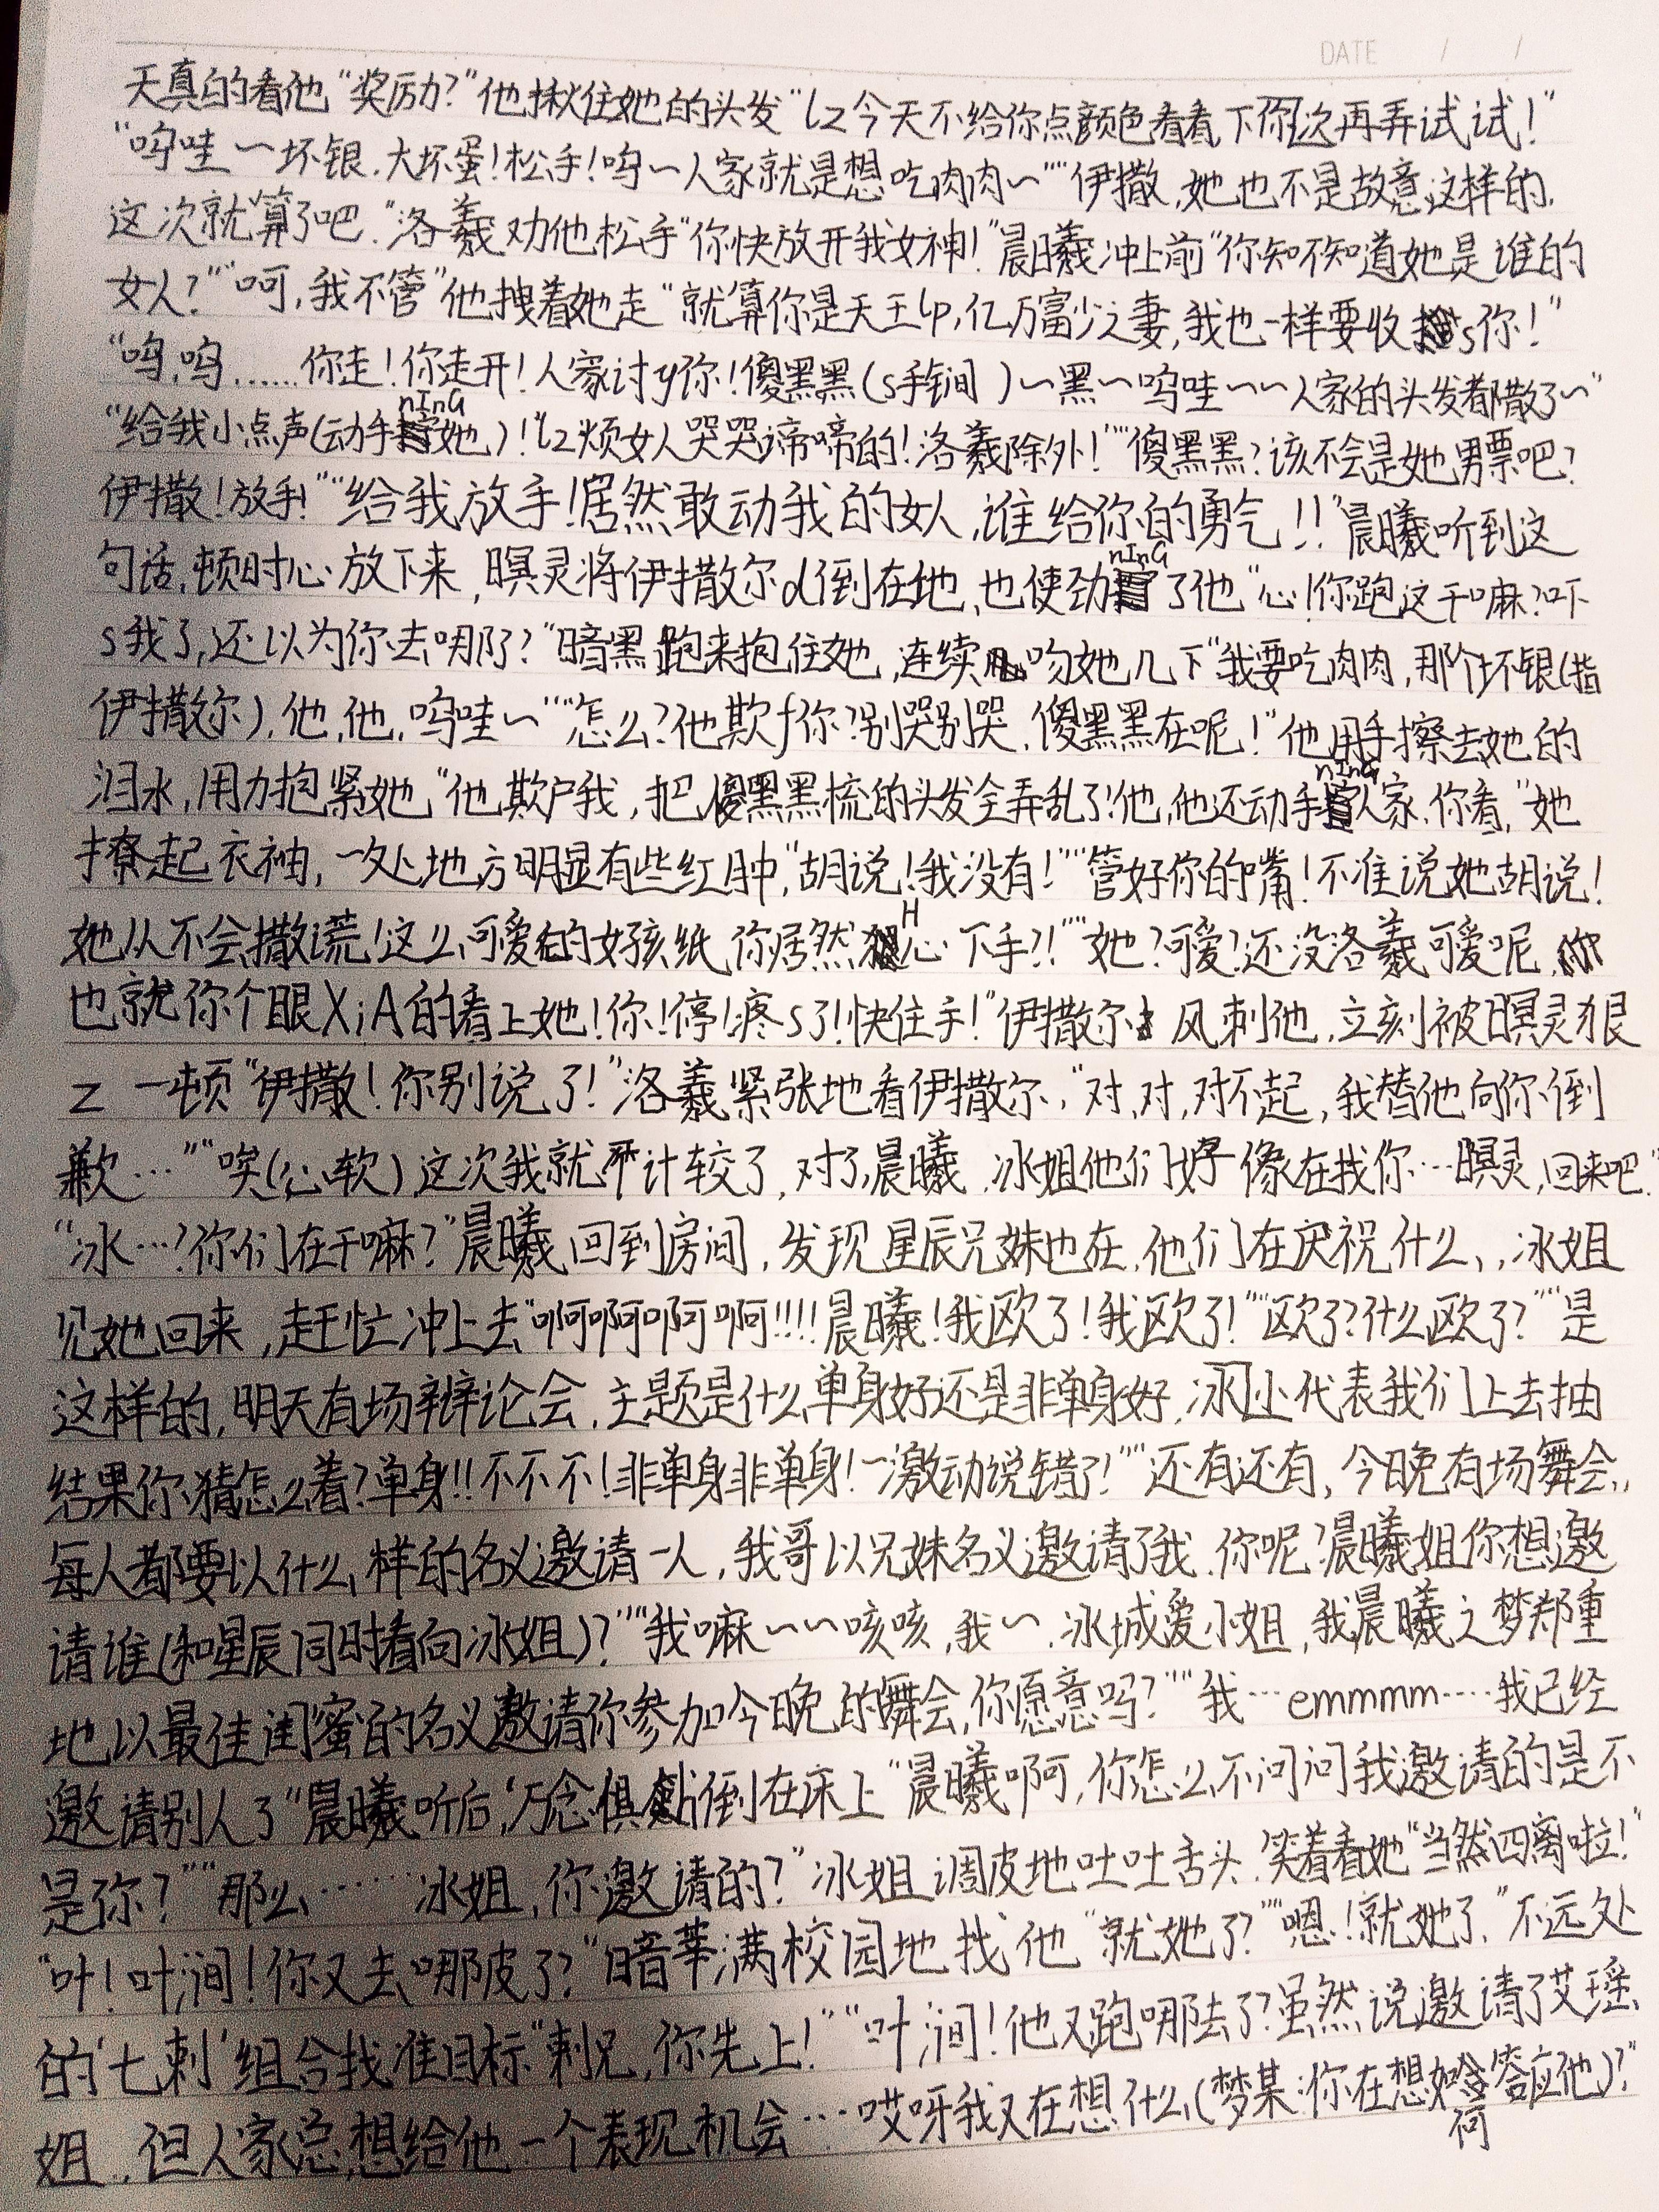 DATE / /
天真的看他“奖厉力?”他揪住她的头发“lz今天不给你点颜色看看,下次你再弄试试!”
“呜哇～坏银.大坏蛋!松手!呜～人家就是想吃肉肉～”“伊撒,她也不是故意这样的.
这次就算了吧.”洛羲劝他松手“你快放开我女神!”晨曦冲上前“你知不知道她是谁的
女人?”“呵,我不管”他拽着她走“就算你是天王lp,亿万富少之妻,我也一样要收s你!”
“呜,呜……你走!你走开!人家讨y你!傻黑黑(s手锏)～黑～呜哇～～人家的头发都散了～”
nInG
“给我小点声(动手她)!“lz烦女人哭哭谛啼的!洛羲除外!”“傻黑黑?该不会是她男票吧?
伊撒!放手!”“给我放手!居然敢动我的女人,谁给你的勇气!!”晨曦听到这
nInG
句话,顿时心放下来,暝灵将伊撒尔d倒在地,也使劲了他“心!你跑这干嘛?吓
s我了,还以为你去哪了?”暗黑跑来抱住她,连续吻她几下“我要吃肉肉,那个坏银(指
伊撒尔),他,他,呜哇～”“怎么?他欺f你?别哭别哭,傻黑黑在呢!”他用手擦去她的
nInG
泪水,用力抱紧她“他欺户我,把傻黑黑梳的头发全弄乱了!他,他还动手人家.你看,”她
撩起衣袖,一处地方明显有些红肿,“胡说!我没有!”“管好你的嘴!不准说她胡说!
H
她从不会撒谎!这么可爱的女孩纸,你居然心下手?!”“她?可爱?还没洛羲可爱呢,
也就你个眼XiA的看上她!你!停!疼s了!快住手!”伊撒尔风刺他,立刻被暝灵狠
z一顿“伊撒!你别说了!”洛羲紧张地看伊撒尔,“对,对,对不起,我替他向你倒
歉…”“唉(心软)这次我就不计较了,对了,晨曦.冰姐他们好像在找你…暝灵,回来吧.”
“冰…?你们在干嘛?”晨曦回到房间,发现星辰兄妹也在,他们在庆祝什么,,冰姐
见她回来,赶忙冲上去“啊啊啊啊!!!!晨曦!我欧了!我欧了!”“欧了?什么欧了?”“是
这样的,明天有场辩论会,主题是什么单身好还是非单身好,冰小代表我们上去抽
结果你猜怎么着?单身!!不不不!非单身非单身!一激动说错了!”“还有还有,今晚有场舞会,,
每人都要以什么样的名义邀请一人,我哥以兄妹名义邀请了我.你呢?晨曦姐你想邀
请谁(和星辰同时看向冰姐)?”“我嘛～～咳咳,我～.冰城爱小姐,我晨曦之梦郑重
地以最佳闺蜜的名义邀请你参加今晚的舞会,你愿意吗?”“我…emmmm…我已经
邀请别人了”晨曦听后,万念俱倒在床上“晨曦啊,你怎么不问问我邀请的是不
是你?”“那么……冰姐,你邀请的?”冰姐调皮地吐吐舌头.笑着看她“当然四离啦!”
“叶!叶涧!你又去哪皮了?”暗莘满校园地找他“就她了?”“嗯!就她了.”不远处
的‘七刺’组合找准目标“刺兄,你先上!”“叶涧!他又跑哪去了?虽然说邀请了艾瑶
姐..但人家总想给他一个表现机会…哎呀我又在想什么(梦某:你在想如何答应他)?”